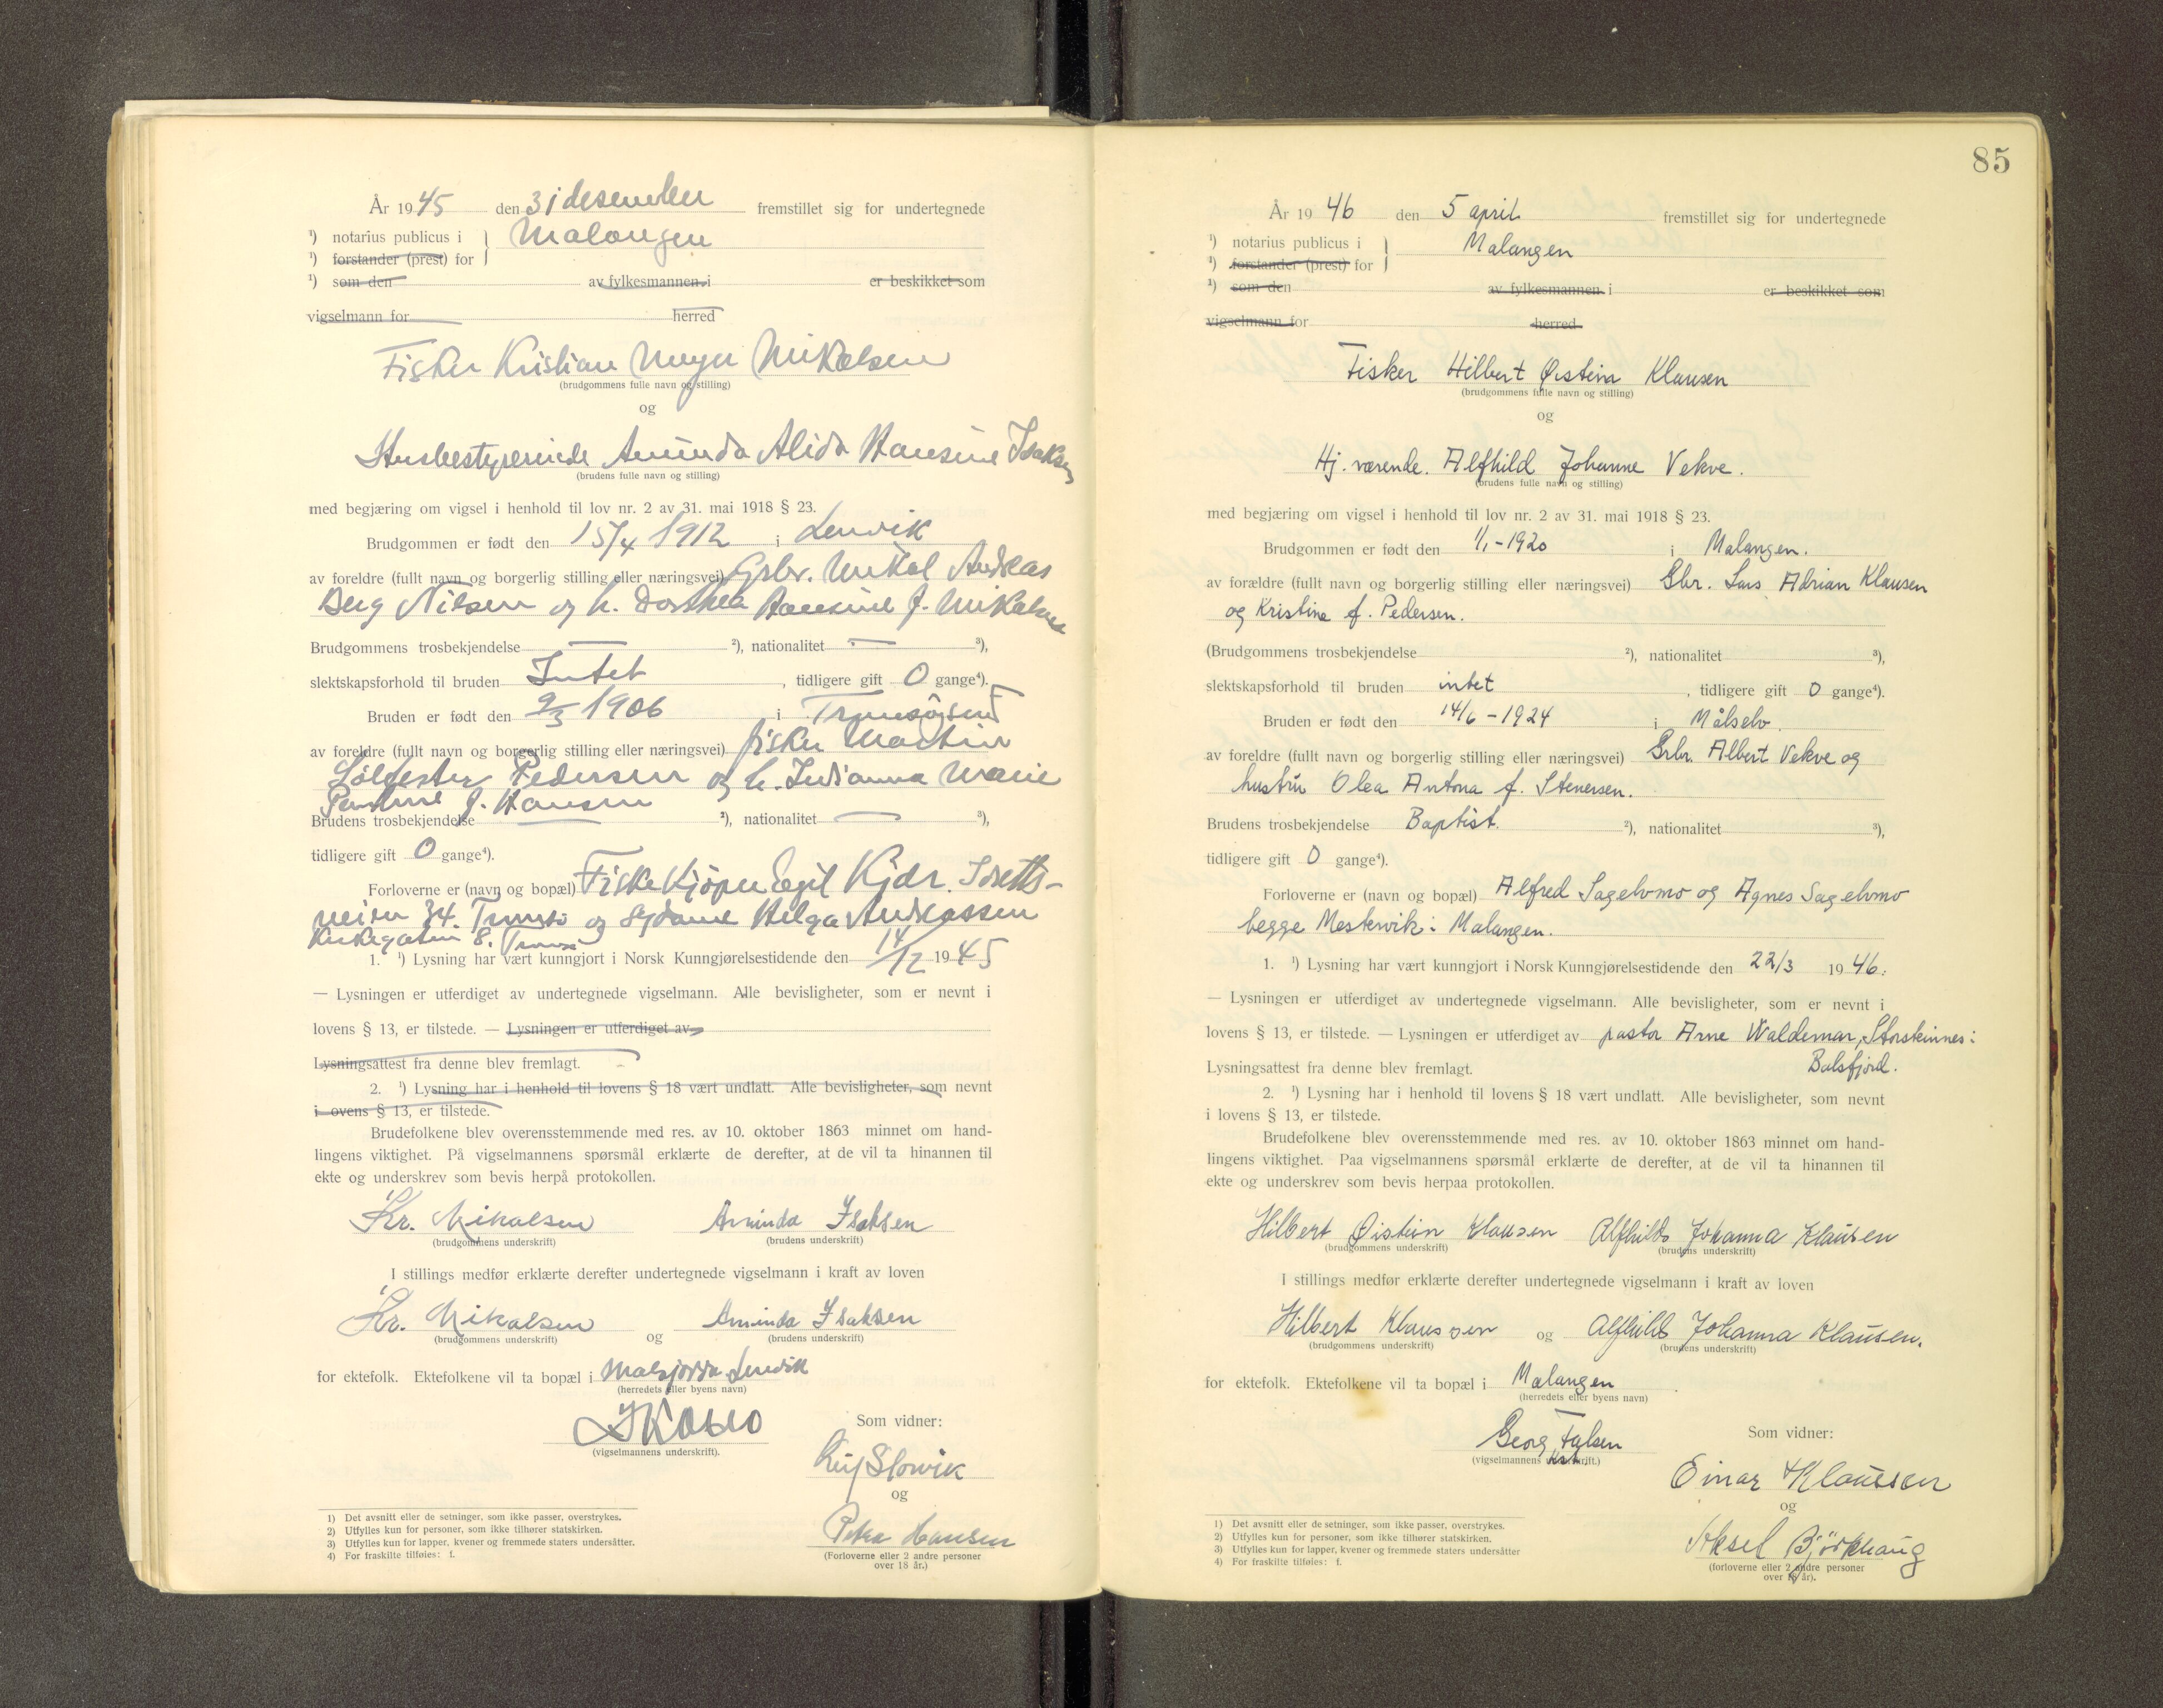 År 1945 den 31 desember fremstillet sig for undertegnede
¹) notarius publicus i } Malangen
¹) forstander (prest) for
¹) som den av fylkesmannen i er beskikket som
vigselmann for herred
Fisker Kristian Meyer Mikalsen
(brudgommens fulle navn og stilling)
og
Husbestyrerinde Aminda Alida Hansine Isaksen
(brudens fulle navn og stilling)
med begjæring om vigsel i henhold til lov nr. 2 av 31. mai 1918 § 23.
Brudgommen er født den 15/4 1912 i Lenvik
av foreldre (fullt navn og borgerlig stilling eller næringsvei) Grbr. Mikal Andreas
Berg Nilsen og h. Dorthea Hansine f. Mikalsen
Brudgommens trosbekjendelse — ²), nationalitet — ³),
slektskapsforhold til bruden Intet, tidligere gift 0 gange⁴).
Bruden er født den 9/3 1906 i Tromsøysund
av foreldre (fullt navn og borgerlig stilling eller næringsvei) fisker Martin
Pedersen og h. Indianna Marie
f. Hansen
Brudens trosbekjendelse — ²), nationalitet — ³),
tidligere gift 0 gange⁴).
Forloverne er (navn og bopæl) Fiskekjøper Egil Kjdr. Idretts-
veien 34. Tromsø og Helga Andreassen
Kirkegaten 8. Tromsø
1. ¹) Lysning har vært kunngjort i Norsk Kunngjørelsestidende den 14/12 1945
— Lysningen er utferdiget av undertegnede vigselmann. Alle bevisligheter, som er nevnt i
lovens § 13, er tilstede. — Lysningen er utferdiget av
Lysningsattest fra denne blev fremlagt.
2. ¹) Lysning har i henhold til lovens § 18 vært undlatt. Alle bevisligheter, som nevnt
i ovens § 13, er tilstede.
Brudefolkene blev overensstemmende med res. av 10. oktober 1863 minnet om hand-
lingens viktighet. På vigselmannens spørsmål erklærte de derefter, at de vil ta hinannen til
ekte og underskrev som bevis herpå protokollen.
Kr. Mikalsen Aminda Isaksen
(brudgommens underskrift) (brudens underskrift)
I stillings medfør erklærte derefter undertegnede vigselmann i kraft av loven
Kr. Mikalsen og Aminda Isaksen
(brudgommens underskrift) (brudens underskrift)
for ektefolk. Ektefolkene vil ta bopæl i Målsjorda Lenvik
(herredets eller byens navn)
(vigselmannens underskrift).
Som vidner:
Leif Slowik
og
Petra Hansen
(Forloverne eller 2 andre personer
over 18 år.)
1) Det avsnitt eller de setninger, som ikke passer, overstrykes.
2) Utfylles kun for personer, som ikke tilhører statskirken.
3) Utfylles kun for lapper, kvener og fremmede staters undersåtter.
4) For fraskilte tilføies: f.
85
År 1946 den 5 april fremstillet sig for undertegnede
¹) notarius publicus i } Malangen
¹) forstander (prest) for
¹) som den av fylkesmannen i er beskikket som
vigselmann for herred
Fisker Hilbert Øistein Klausen
(brudgommens fulle navn og stilling)
og
Hj. værende. Alfhild Johanne Vekve.
(brudens fulle navn og stilling)
med begjæring om vigsel i henhold til lov nr. 2 av 31. mai 1918 § 23.
Brudgommen er født den 1/1-1920 i Malangen.
av forældre (fullt navn og borgerlig stilling eller næringsvei) Gbr. Lars Adrian Klausen
og Kristine f. Pedersen.
(Brudgommens trosbekjendelse ²), nationalitet ³),
slektskapsforhold til bruden intet, tidligere gift 0 gange⁴).
Bruden er født den 14/6-1924 i Målselv.
av foreldre (fullt navn og borgerlig stilling eller næringsvei) Grbr. Albert Vekve og
hustru Olea Antona f. Stenersen.
Brudens trosbekjendelse Baptist. ²), nationalitet ³),
tidligere gift 0 gange⁴).
Forloverne er (navn og bopæl) Alfred Sagelvmo og Agnes Sagelvmo
begge Mestervik i Malangen.
1. ¹) Lysning har vært kunngjort i Norsk Kunngjørelsestidende den 22/3 1946.
— Lysningen er utferdiget av undertegnede vigselmann. Alle bevisligheter, som er nevnt i
lovens § 13, er tilstede. — Lysningen er utferdiget av pastor Arne Waldemar, Storsteinnes i
Lysningsattest fra denne blev fremlagt. Balsfjord.
2. ¹) Lysning har i henhold til lovens § 18 vært undlatt. Alle bevisligheter, som nevnt
i lovens § 13, er tilstede.
Brudefolkene blev overensstemmende med res. av 10. oktober 1863 minnet om hand-
lingens viktighet. Paa vigselmannens spørsmål erklærte de derefter, at de vil ta hinannen til
ekte og underskrev som bevis herpaa protokollen.
Hilbert Øistein Klausen Alfhild Johanna Klausen
(brudgommens underskrift) (brudens underskrift)
I stillings medfør erklærte derefter undertegnede vigselmann i kraft av loven
Hilbert Klaussen og Alfhild Johanna Klausen.
(brudgommens underskrift) (brudens underskrift)
for ektefolk. Ektefolkene vil ta bopæl i Malangen
(herredets eller byens navn)
Georg Falsen
(vigselmannens underskrift.)
Som vidner:
Einar Klaussen
og
Aksel Bjørkhaug
(forloverne eller 2 andre personer
over 18 år).
1) Det avsnitt eller de setninger, som ikke passer, overstrykes.
2) Utfylles kun for personer, som ikke tilhører statskirken.
3) Utfylles kun for lapper, kvener og fremmede staters undersåtter
4) For fraskilte tilføies: f.